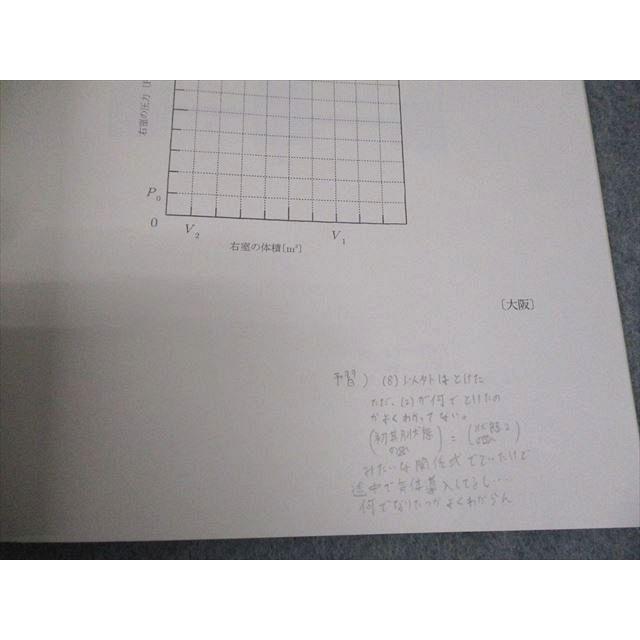 右室の圧力〔P
P₀
0
V₂
V₁
右室の体積〔m³〕
〔大阪〕
予習) (8)以外はとけた
ただ、(2)が何でとけたの
かよくわかってない。
(初期状態の図) = (状態2の図)
みたいな関係式でていたけど
途中で気体導入してるし…
何でなりたつかよくわからん